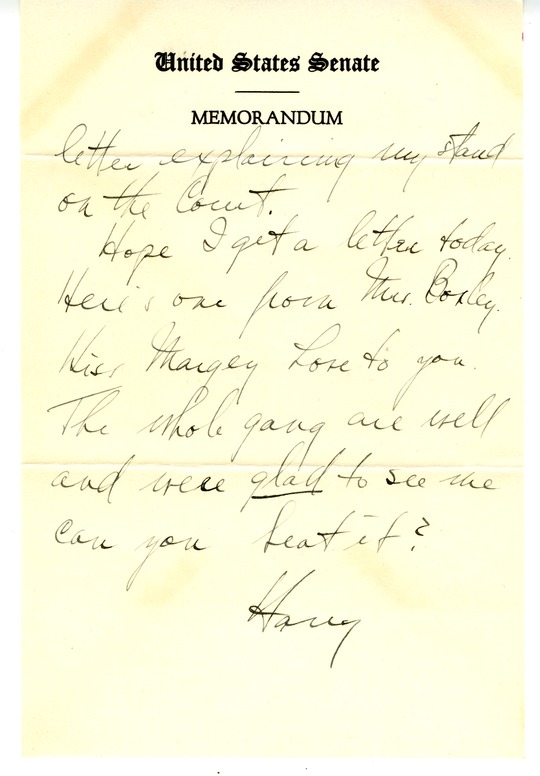 United States Senate
MEMORANDUM
letter explaining my stand
on the Court.
Hope I get a letter today.
Here's one from Mrs. Boxley.
Kiss Margey Love to you.
The whole gang are well
and were glad to see me
can you beat it?
Harry